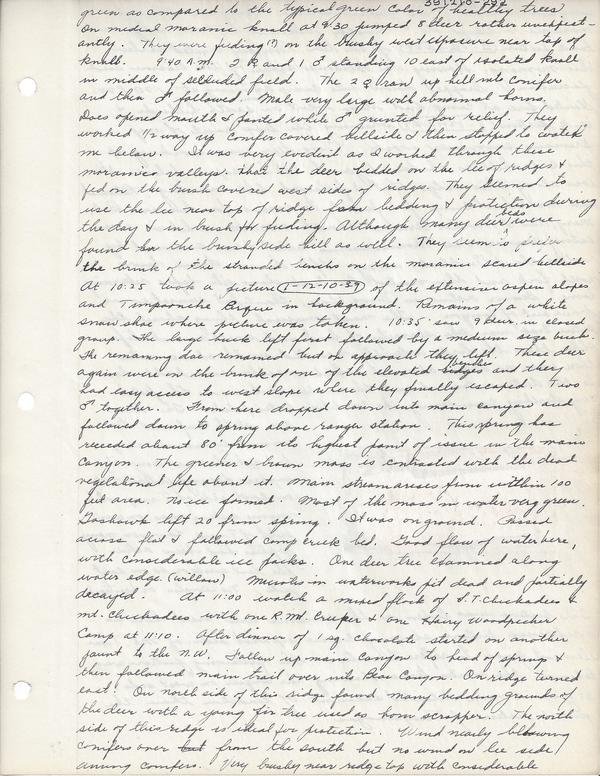 391210-292
green as compared to the typical green color of healthy trees
On medial morainic knall at 9:30 jumped 8 deer rather unexpect-
antly. They were feeding (?) on the brushy west exposure near top of
knall. 9:40 A.M. 2 ♀ and 1 ♂ standing 10 east of isolated knall
in middle of secluded field. The 2 ♀ ran up hill into conifer
and then ♂ followed. Male very large with abnormal horns.
Does opened mouth & panted while ♂ grunted for relief. They
worked 1/2 way up conifer covered hillside & then stopped to watch
me below. It was very evident as I worked through these
morainic valleys. that the deer bedded on the lee of ridges &
fed on the brush covered west sides of ridges. They seemed to
use the lee near top of ridge for bedding & protection during
the day & in brush for feeding. Although many deer beds were
found on the brushy side hill as well. They seem
the brink of the stranded benchs on the morainic scared hillside
At 10:25 took a picture (1-12-10-39) of the extensive aspen slopes
and Timpanogos in background. Remains of a white
snow shoe where picture was taken. 10:35 saw 9 deer in closed
group. The large buck left first followed by a medium size buck.
The remaining doe remained but on approach they left. These deer
again were on the brink of one of the elevated ridges benches and they
had easy access to west slope where they finally escaped. Two
♂ together. From here dropped down into main canyon and
followed down to spring above ranger station. This spring has
receded about 80' from its highest point of issue in the main
Canyon. The greener & brown moss is contrasted with the dead
vegetational life about it. Main stream arises from within 100
feet area. No ice formed. Most of the moss in water very green.
Goshawk left 20 from spring. It was on ground. Passed
across flat & followed camp creek bed. Good flow of water here,
with considerable ice packs. One deer tree examined along
water edge. (willow) Microtus in waterworks pit dead and partially
decayed. At 11:00 watch a mixed flock of S.T. Chickadees &
mt. Chickadees with one R.M. Creeper & one Hairy Woodpecker
Camp at 11:10. After dinner of 1 sq. chocolate started on another
jaunt to the N.W. Follow up main Canyon to head of spring &
then followed main trail over into Bear Canyon. On ridge turned
east. On north side of this ridge found many bedding grounds of
the deer with a young fir tree used as horn scrapper. The north
side of this ridge is ideal for protection. Wind nearly blowing
conifers over but from the south but no wind on lee side
among conifers. Very brushy near ridge top with considerable